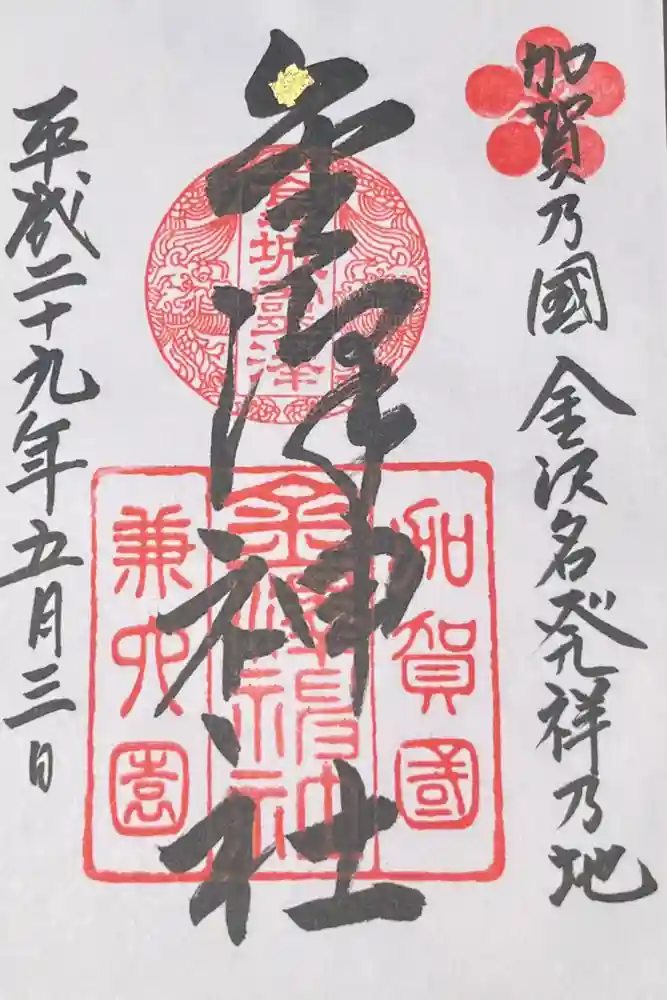 加賀乃國 金沢名発祥乃地
金澤神社
加賀國
金澤神社
兼六園
平成二十九年五月三日